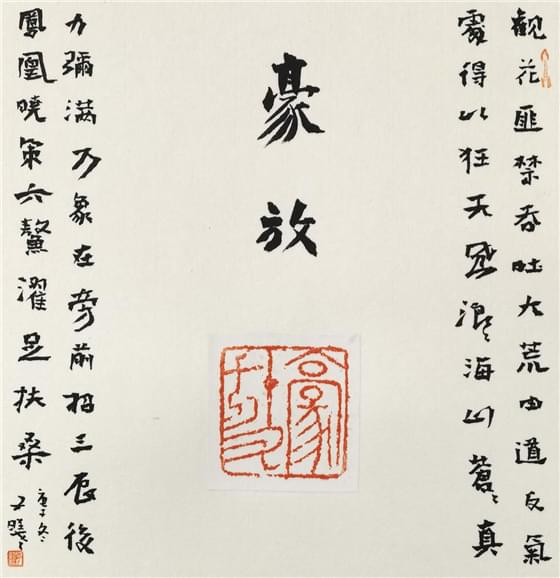 観花匪禁吞吐大荒由道反氣
處得以狂天風浪〻海山蒼〻真
豪放
豪放
力彌满万象在旁前招三辰後
鳳凰曉策六鰲濯足扶桑
庚子冬